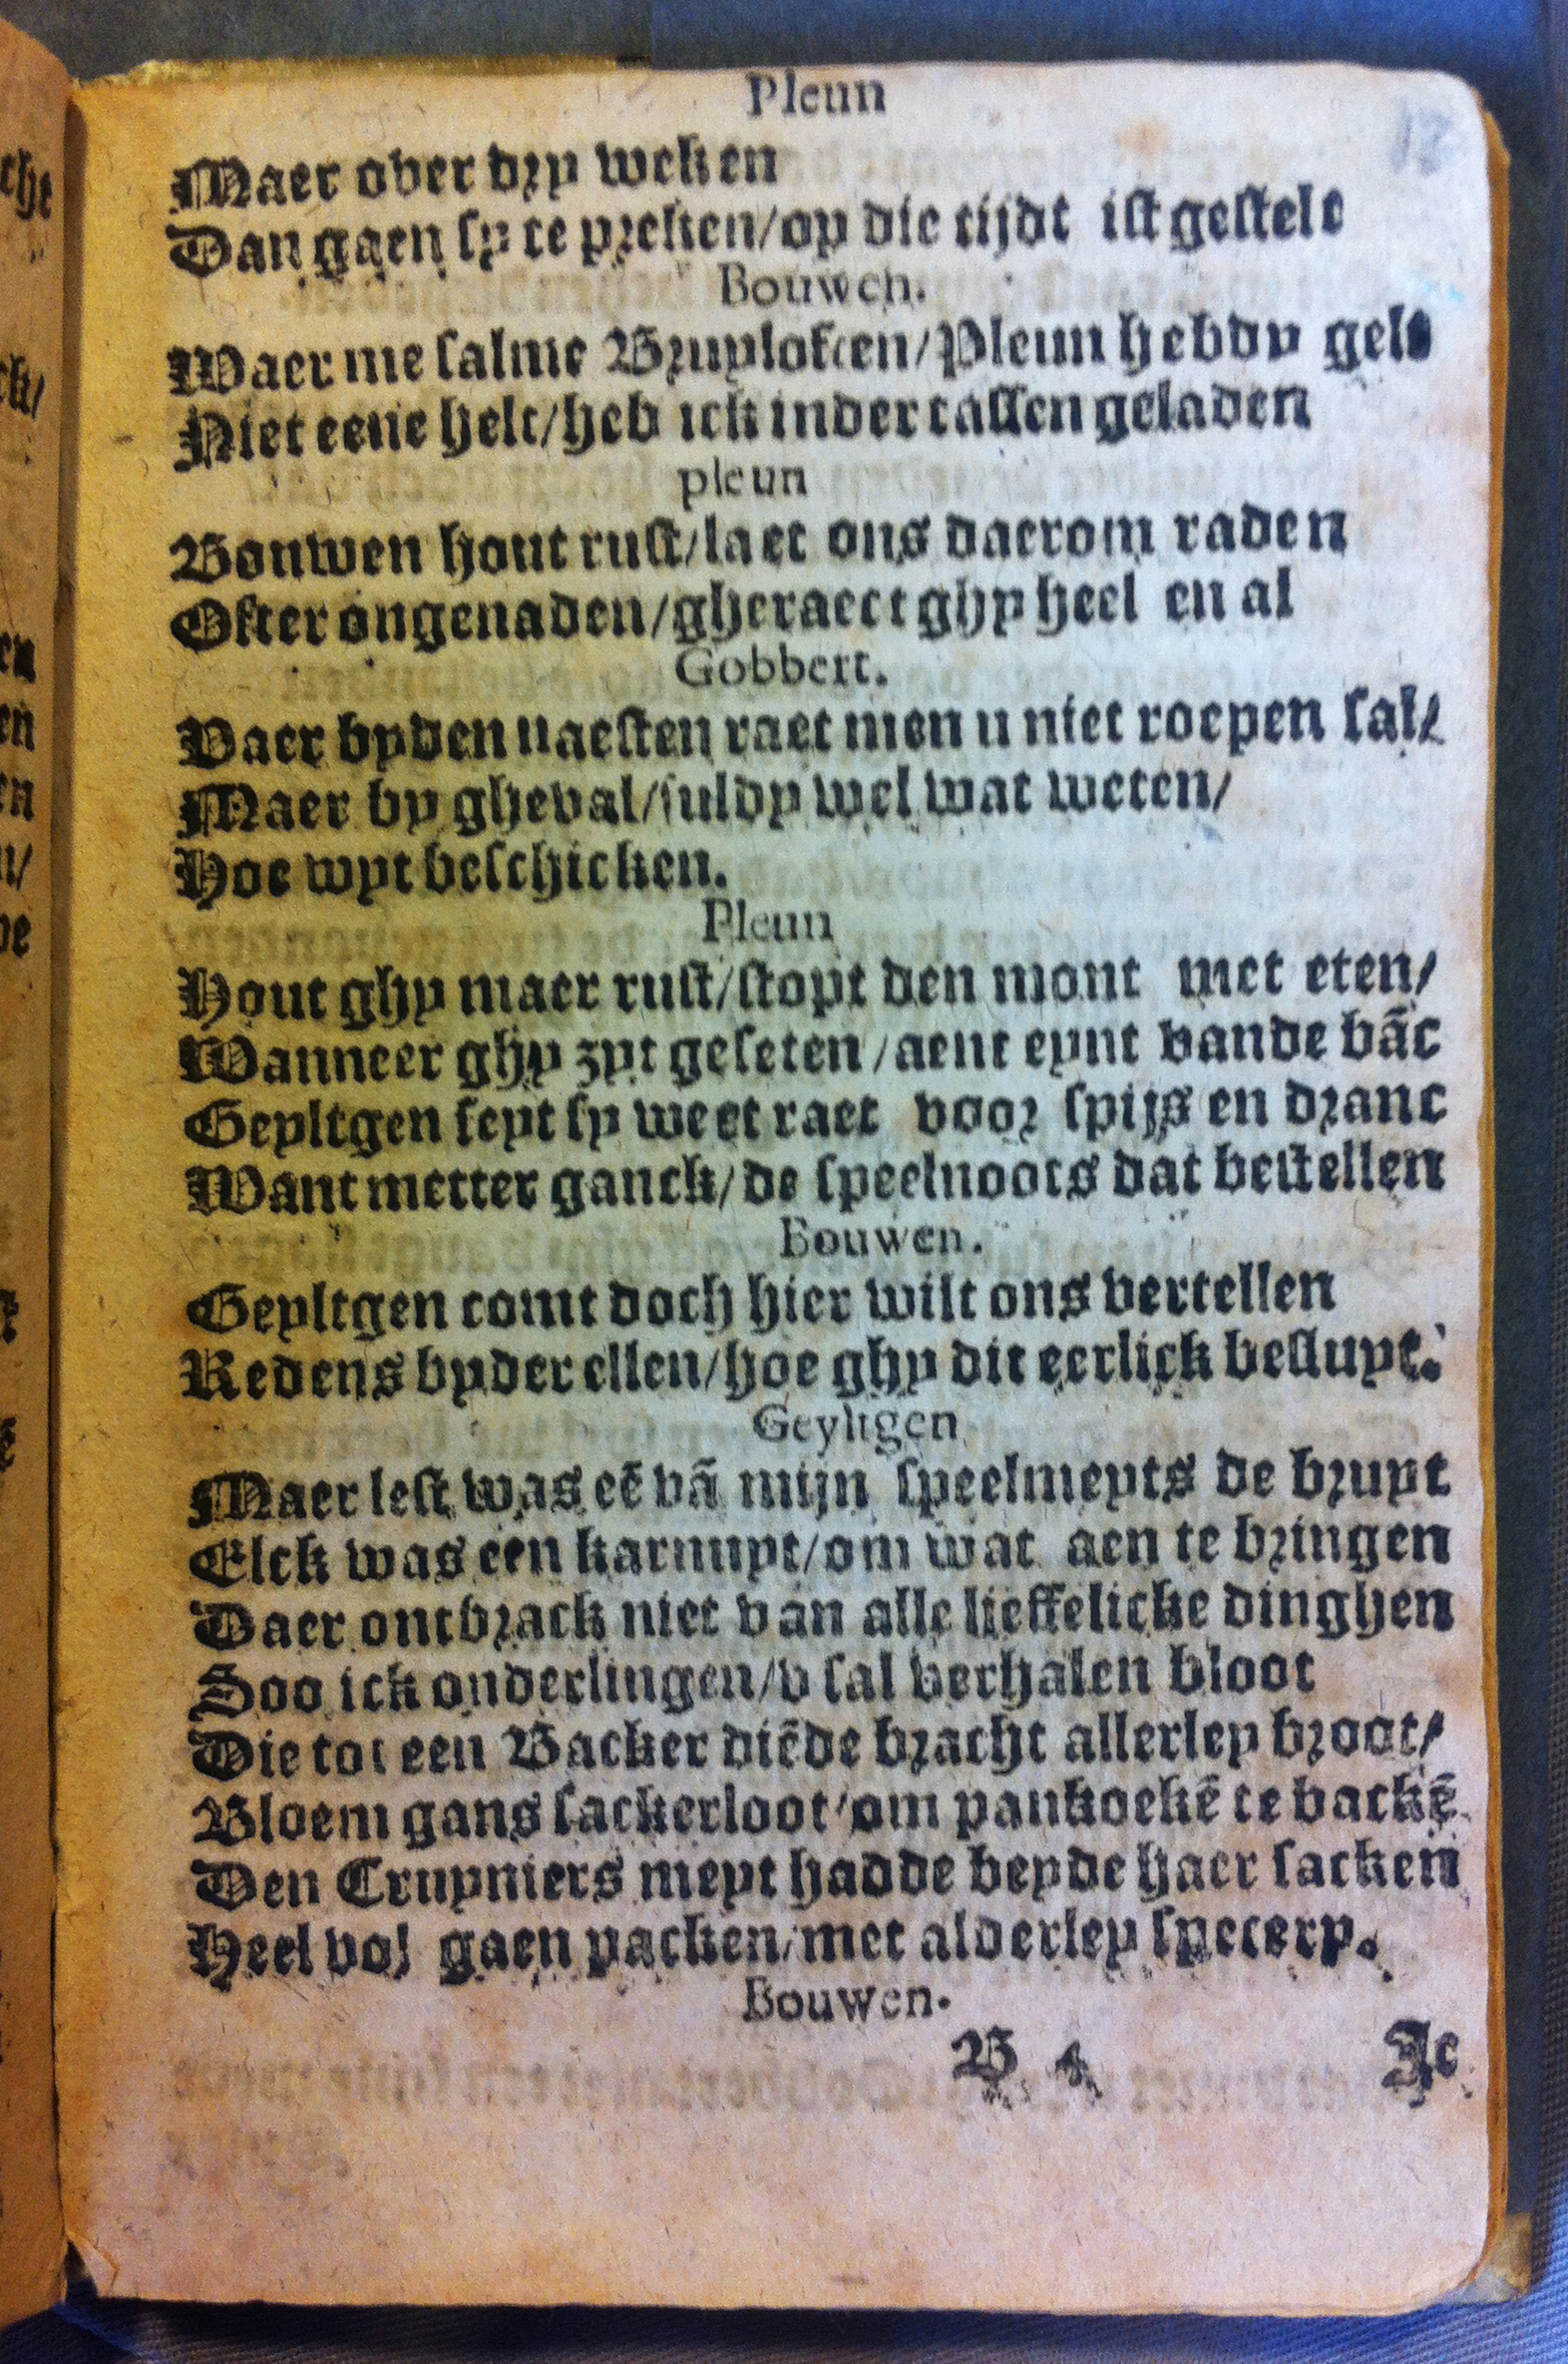 Pleun
Maer over dry weken
Dan gaen sy te preken/op die tijdt ist gestelt
Bouwen.
Waer me salme Bruyloften/Pleun hebdy gelt
Niet eene helt/heb ick inder tassen geladen
pleun
Bouwen hout rust/laet ons daerom raden
Ofter ongenaden/gheraect ghy heel en al
Gobbert.
Vaer byden naesten raet men u niet roepen sal/
Maer by gheval/suldy wel wat weten/
Hoe wyt beschicken.
Pleun
Hout ghy maer rust/stopt den mont met eten/
Wanneer ghy zyt geseten/aent eynt vande bāc
Geyltgen seyt sy weet raet voor spijs en dranc
Want metter ganck/de speelnoots dat bestellen
Bouwen.
Geyltgen comt doch hier wilt ons vertellen
Redens byder ellen/hoe ghy dit eerlick besluyt.
Geyltgen
Maer lest was eē vā mijn speelmeyts de bruyt
Elck was een karnuyt/om wat aen te bringen
Daer ontbrack niet van alle lieffelicke dinghen
Soo ick onderlingen/v sal verhalen bloot
Die tot een Backer diēde bracht allerley broot/
Bloem gans sackerloot/om pankoekē te backē
Den Cruyniers meyt hadde beyde haer sacken
Heel vol gaen packen/met alderley specery.
Bouwen.
B 4 Ic